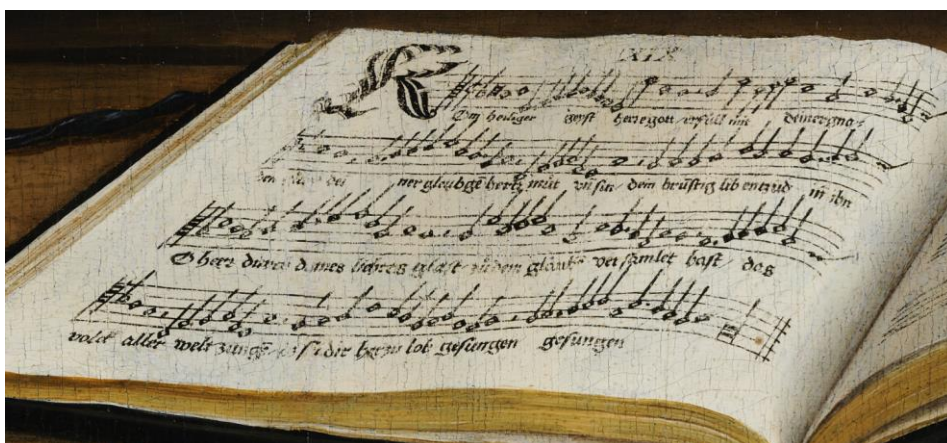 XIX
Kom heiliger geyst herregott erfüll mit deinergna
dei ner gleubgē hertz mut vn sin dem brustig lib entzud in ihn
O herr durch deines lichtes glast zu dem glaubē versamlet hast das
volck aller welt zungē dir herzu lob gesungen gesungen